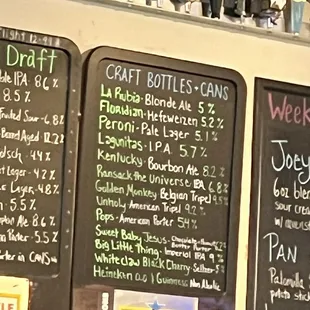 Flight 12
Draft
ble IPA 8.6%
8.5%
Fruited Sour - 6.8
Barrel Aged 12.2
olsch - 4.4%
t Lager - 4.2%
Lager - 4.8%
5.5%
Ale 8.6%
Porter - 5.5%
Porter in CANS
CRAFT BOTTLES + CANS
La Rubia - Blonde Ale 5%
Floridian - Hefeweizen 5.2%
Peroni - Pale Lager 5.1%
Lagunitas - I.P.A. 5.7%
Kentucky - Bourbon Ale 8.2%
Ransack the Universe IPA 6.8%
Golden Monkey Belgian Tripel 9.5%
Unholy - American Tripel 9.2%
Pops - American Porter 5.4%
Sweet Baby Jesus - Chocolate Peanut Butter Porter 6.2%
Big Little Thing - Imperial IPA 9%
Whiteclaw Black Cherry - Seltzer - 5%
Heineken 0.0 | Guinness Non Alcoholic
Week
Joey
6oz blen
sour crea
PAN
Palomilla
potato stick